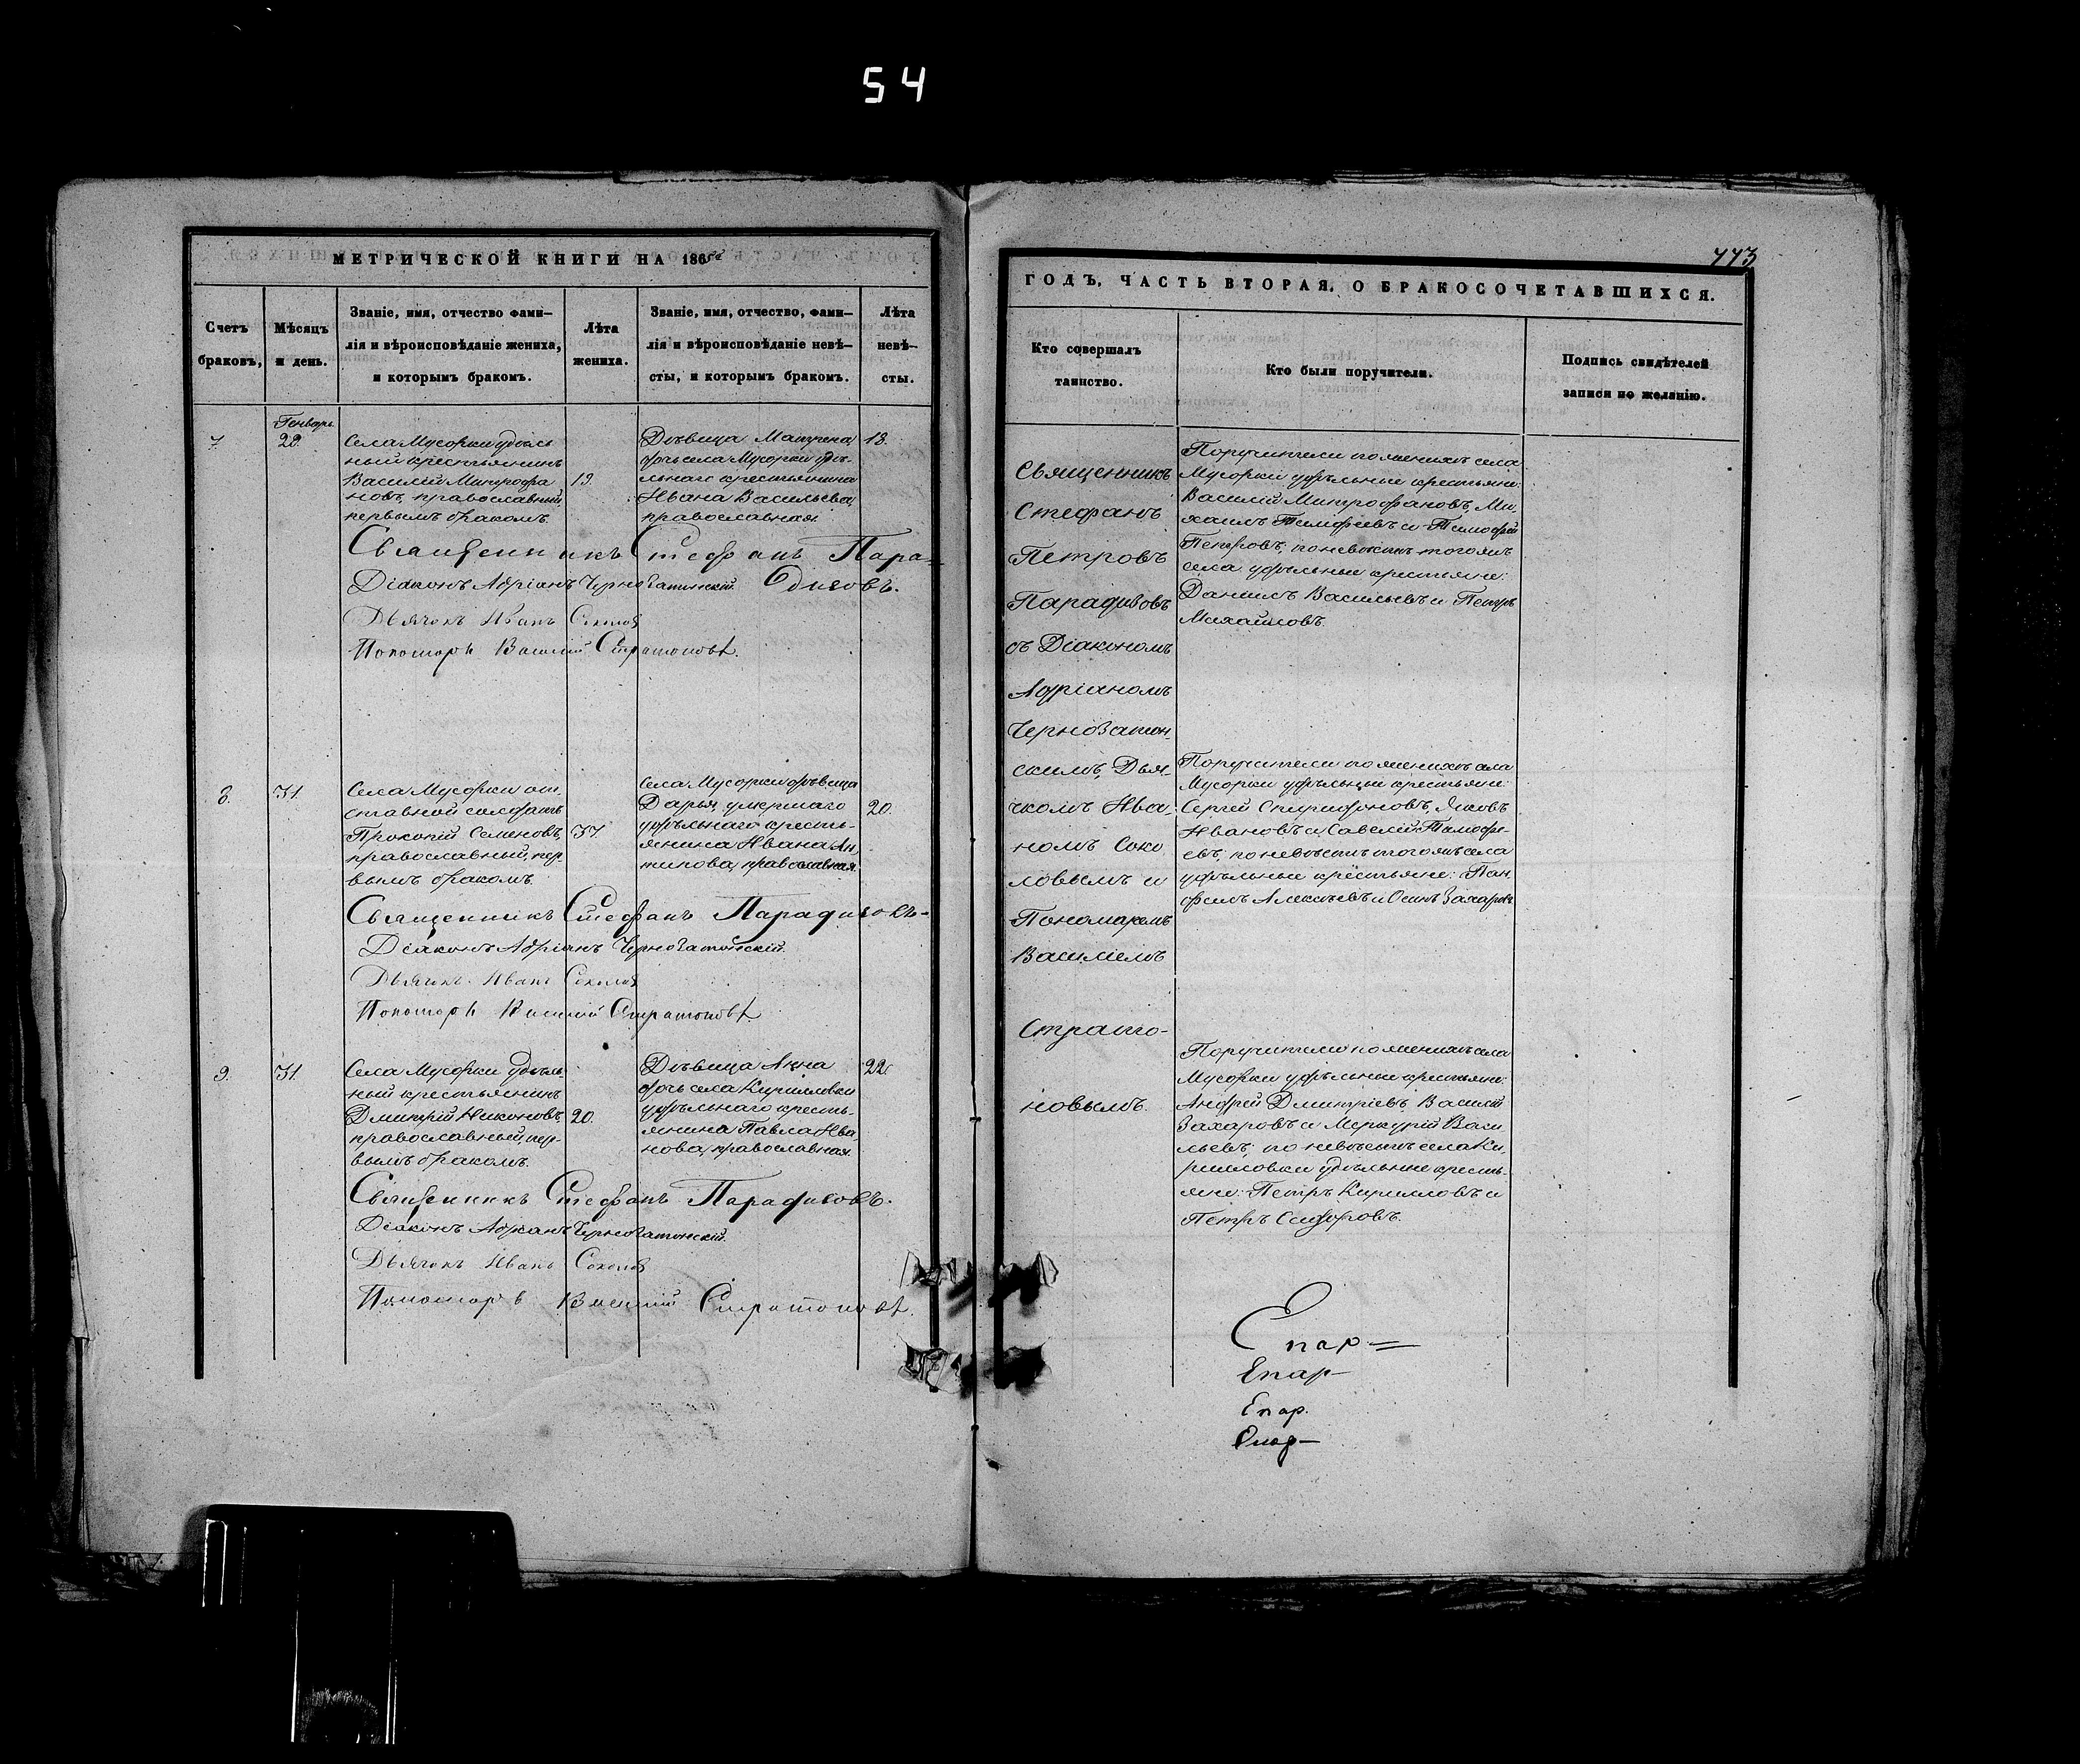 54
МЕТРИЧЕСКОЙ КНИГИ НА 186
Счетъ браковъ,
Мѣсяцъ и день.
Званіе, имя, отчество фами-
лія и вѣроисповѣданіе жениха,
и которымъ бракомъ.
Лѣта
жениха.
Званіе, имя, отчество, фами-
лія и вѣроисповѣданіе невѣ-
сты, и которымъ бракомъ.
Лѣта
невѣ-
сты.
7.
Генварь
22.
Села Мусорки удѣль
ный крестьянинъ
Василій Митрофа
новъ, православный,
первымъ бракомъ.
19.
Дѣвица Матрена
дочь села Мусорки удѣ-
льнаго крестьянина
Ивана Васильева,
православная.
18.
Священникъ Стефанъ Пара-
Діаконъ Адріанъ Чернозатонскій. дизовъ.
Дьячокъ Иванъ Соколов
Пономарь Василій Стратоновъ.
8.
31.
Села Мусорки от-
ставной солдатъ
Прокопій Семеновъ,
православный, пер
вымъ бракомъ.
37.
Села Мусорки дѣвица
Дарья, умершаго
удѣльнаго кресть-
янина Ивана Ан
типова, православная.
20.
Священникъ Стефанъ Парадизовъ-
Діаконъ Адріанъ Чернозатонскій.
Дьячокъ Иванъ Соколов
Пономарь Василій Стратоновъ
9.
31.
Села Мусорки удѣль-
ный крестьянинъ
Дмитрій Никоновъ,
православный, пер-
вымъ бракомъ.
20.
Дѣвица Анна
дочь села Кириловки
удѣльнаго кресть-
янина Павла Ива
нова, православная.
22.
Священникъ Стефанъ Парадизовъ.
Діаконъ Адріанъ Чернозатонскій.
Дьячокъ Иванъ Соколов
Пономарь Василій Стратоновъ.
773
ГОДЪ, ЧАСТЬ ВТОРАЯ, О БРАКОСОЧЕТАВШИХСЯ.
Кто совершалъ
таинство.
Кто были поручители.
Подпись свидѣтелей
записи по желанію.
Священникъ
Стефанъ
Петровъ
Парадизовъ
съ Діакономъ
Адріаномъ
Чернозатон-
скимъ, Дья-
чкомъ Ива-
номъ Соко
ловымъ и
Пономаремъ
Василіемъ
Страто-
новымъ.
Поручители по женихѣ села
Мусорки удѣльные крестьяне:
Василій Митрофановъ, Ми-
хаилъ Тимофеевъ и Тимофей
Петровъ, по невѣстѣ тогожъ
села удѣльные крестьяне:
Данилъ Васильевъ и Петръ
Михайловъ.
Поручители по женихѣ села
Мусорки удѣльные крестьяне:
Сергей Спиридоновъ, Яковъ
Ивановъ и Савелій Тимофе-
евъ, по невѣстѣ тогожъ села
удѣльные крестьяне: Пан
филъ Алексѣевъ и Осипъ Захаровъ
Поручители по женихѣ села
Мусорки удѣльные крестьяне:
Андрей Дмитріевъ, Василій
Захаровъ и Меркурій Васи
льевъ, по невѣстѣ села Ки
риловки удѣльные кресть-
яне: Петръ Кириловъ и
Петръ Сидоровъ.
Епар-
Епар-
Епар.
Епар-